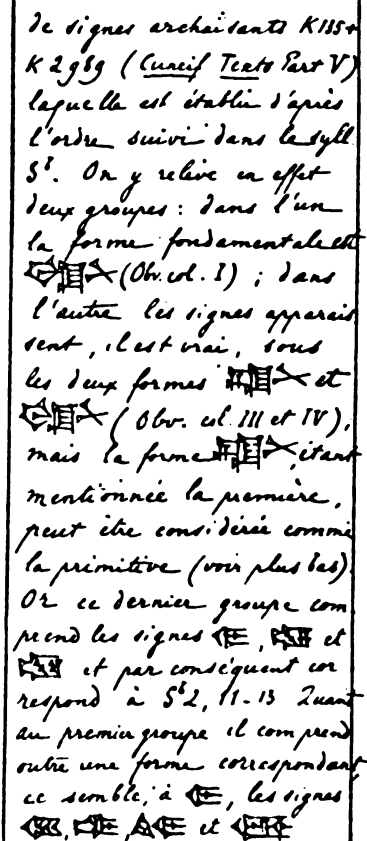 de signes archaïsants K 135+
K 2989 (Cuneif Texts Part V)
laquelle est établie d'après
l'ordre suivi dans le syll
Sᵇ. On y relève en effet
deux groupes : dans l'un
la forme fondamentale est
(Obv. col. I) ; dans
l'autre les signes apparais
sent, il est vrai, sous
les deux formes et
(Obv. col. III et IV),
mais la forme étant
mentionnée la première,
peut être considérée comme
la primitive (voir plus bas).
Or ce dernier groupe com
prend les signes , et
et par conséquent cor
respond à Sᵇ 2, 11-13 Quant
au premier groupe il comprend
outre une forme correspondant,
ce semble, à , les signes
, , et